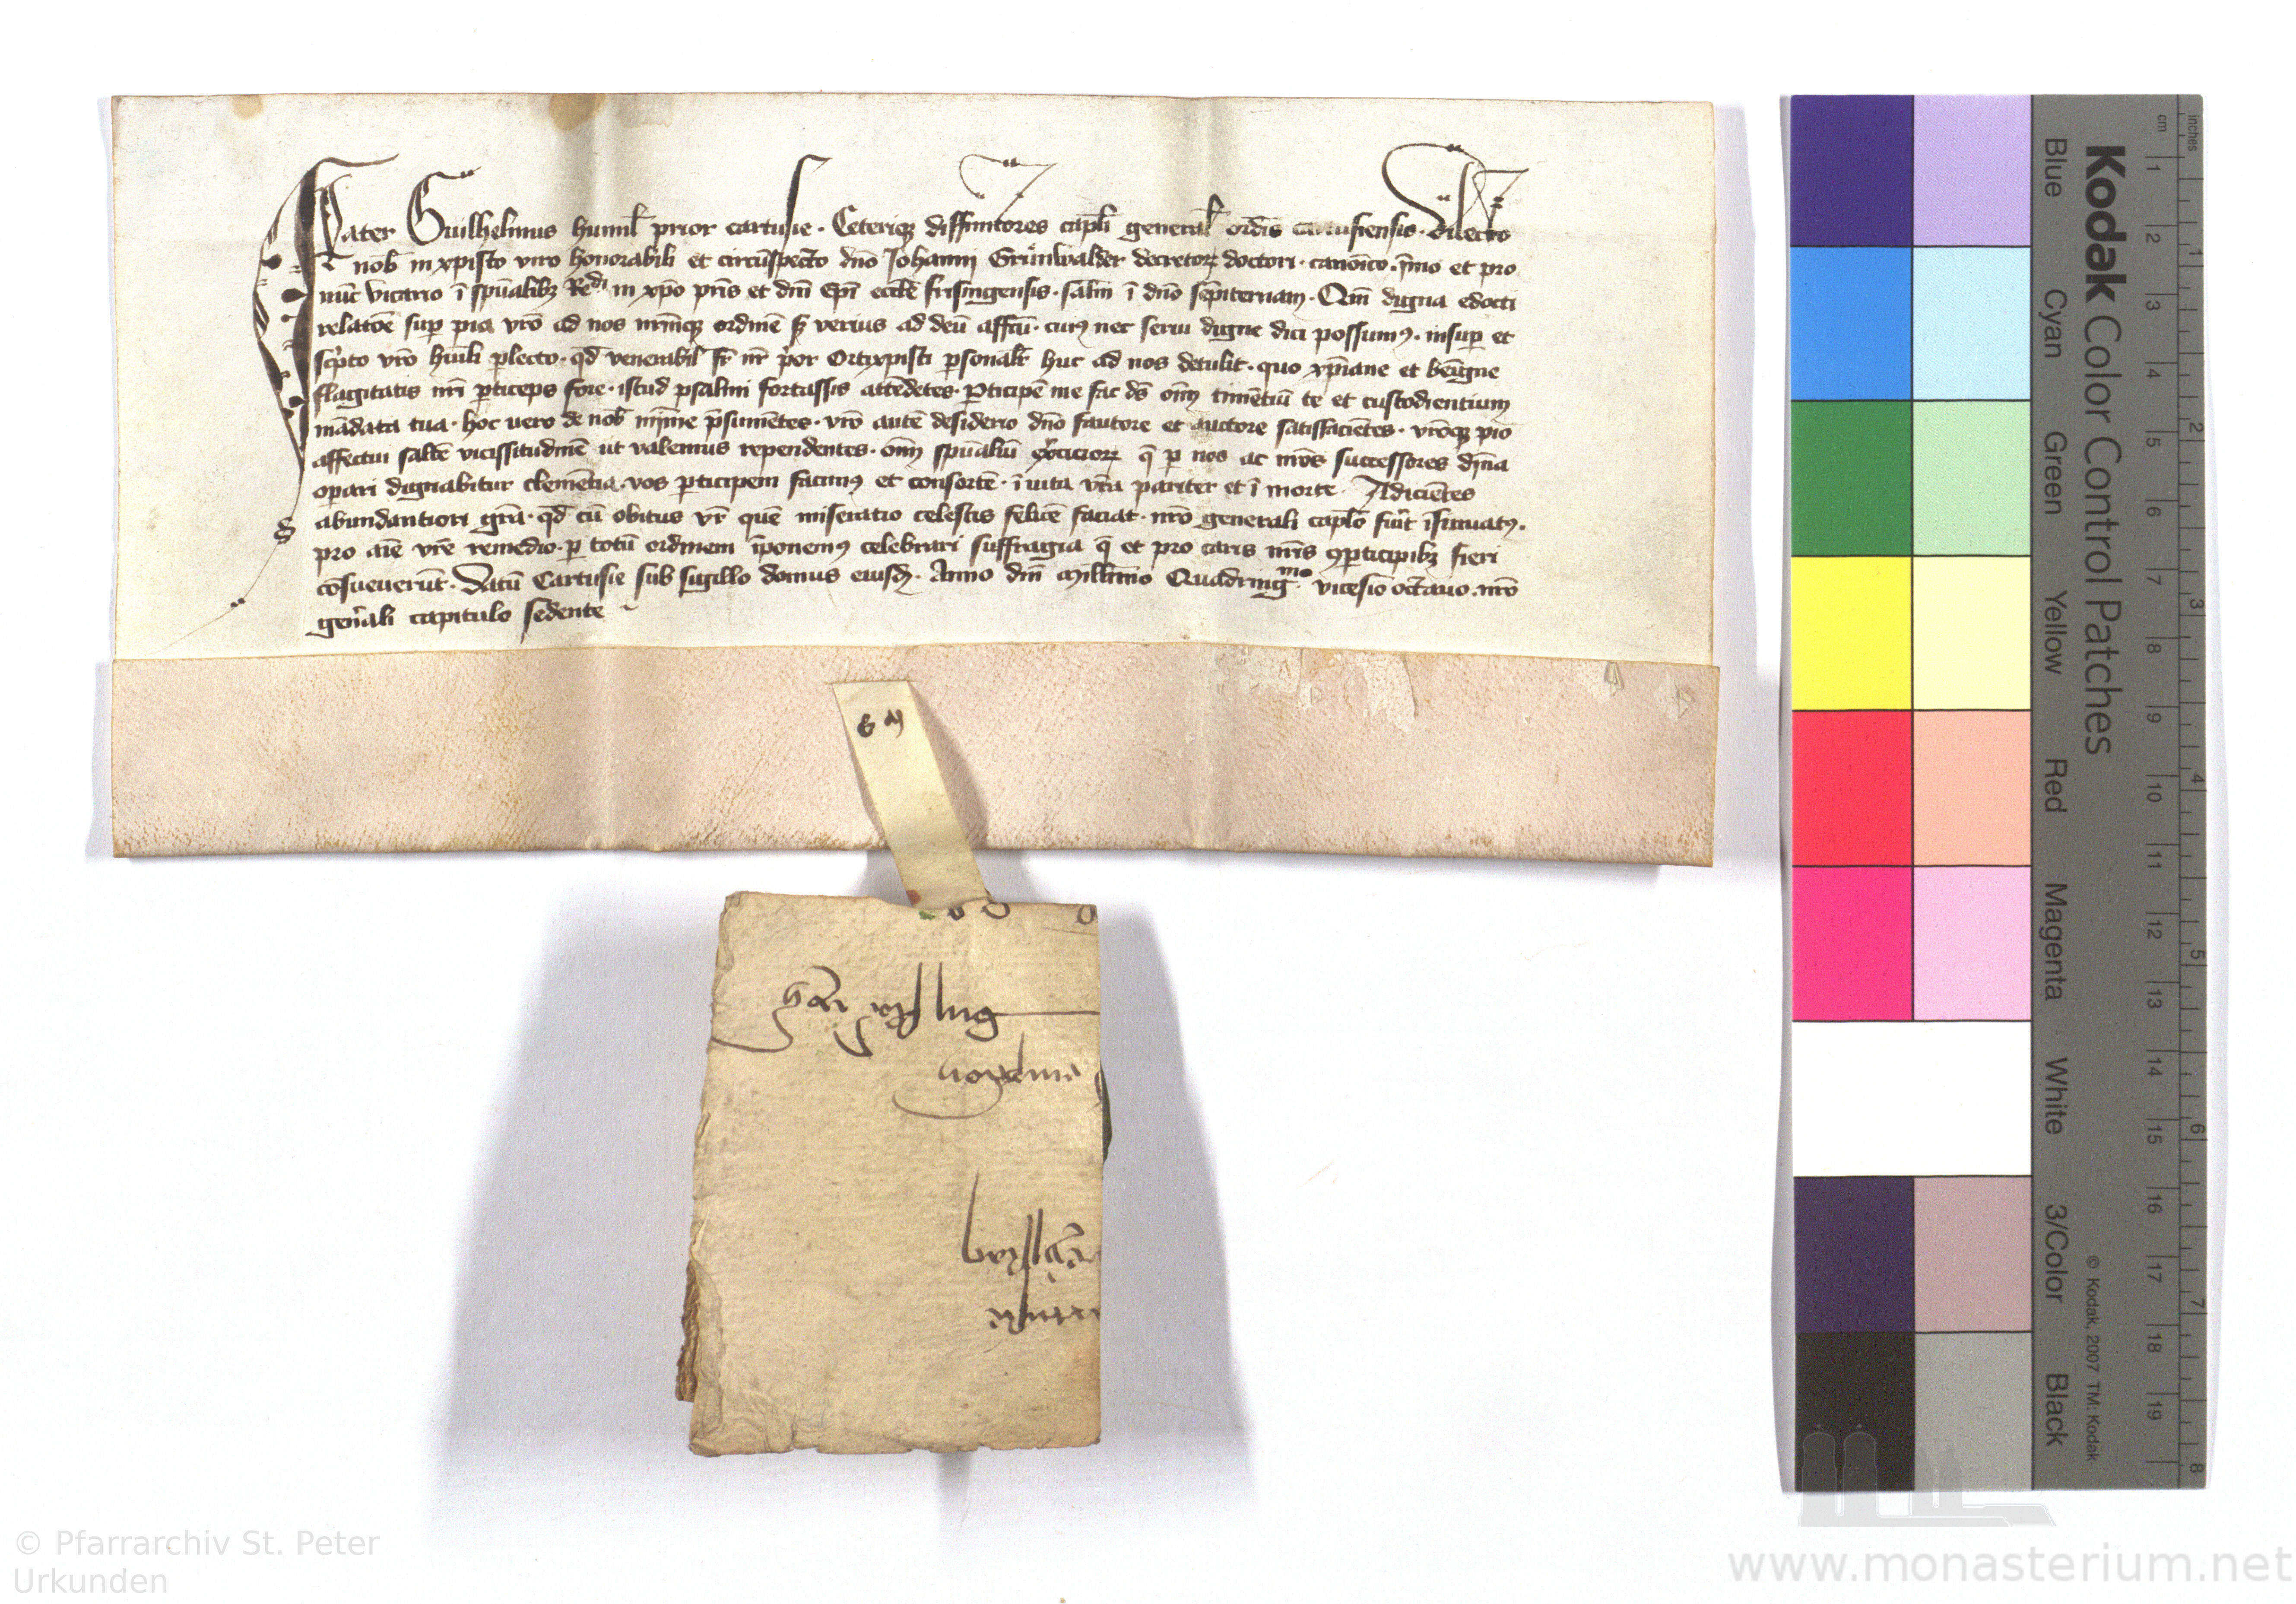 Frater Guilhelmus humil̄ prior cartusie · Ceteriqꝫ diffinitores cap̄li general̄ ordīs cartusiensis · Dilecto
nob̄ in xp̄isto viro honorabili et circūspecto dn̄o Johanni Grünwalder decretoꝝ doctori · canoīco · īmo et pro
nūc vicario ī sp̄ualibꝫ Reᵈⁱ in xp̄o pr̄is et dn̄i ep̄i eccl̄e frisingensis · salm̄ ī dn̄o sēpiternam · Qm̄ digna edocti
relatōe suꝑ pia vr̄o ad nos nr̄mqꝫ ordinē sꝫ verius ad deū affc̄u · cuiꝰ nec seriu digne dici possumꝰ · insuꝑ et
sc̄pto vr̄o hūili ꝑlecto · qd̄ venerabil̄ fr̄ nr̄ p̄or Ortixp̄isti ꝑsonalr̄ huc ad nos detulit · quo xp̄iane et benigne
flagitatis nr̄i ꝑticeps fore · istud psalmi fortassis attēdētes · ꝑticipē me fac ds̄ oīm timētiū te et custodientium
mādata tua · hoc uero de nob̄ minīme p̄sumētes · vr̄o autē desiderio dn̄o fautore et auctore satisfaciētes · vr̄oqꝫ pio
affectui saltē vicissitudinē ut valemus rependentes · oīm sp̄ualiū ex̄ercicioꝝ q̄ ꝑ nos ac nr̄os successores diīna
oꝑari dignabitur clemētia · vos ꝑticipem facimꝰ et consortē · ī uita vr̄a pariter et ī morte · Adiciētes
abundantiori gr̄a · qd̄ cū obitus vr̄ quē miseratio celestis felicē faciat · nr̄o generali cap̄lo fuīt īsinuatꝰ ·
pro aīe vr̄e remedio · ꝑ totū ordinem īponemꝰ celebrari suffragia q̄ et pro caris nr̄is ꝯꝑticipibꝫ fieri
cōsueuerūt · Datū Cartusie sub sigillo domus eiusdꝫ · Anno dn̄i Mill̄imo Quadringᵐᵒ · vicesīo octauo · nr̄o
gen̄ali capitulo sedente
Kodak Color Control Patches
Blue Cyan Green Yellow Red Magenta White 3/Color Black
© Kodak, 2007 TM: Kodak
cm 1 2 3 4 5 6 7 8 9 10 11 12 13 14 15 16 17 18 19
inches 1 2 3 4 5 6 7 8
© Pfarrarchiv St. Peter
Urkunden
www.monasterium.net